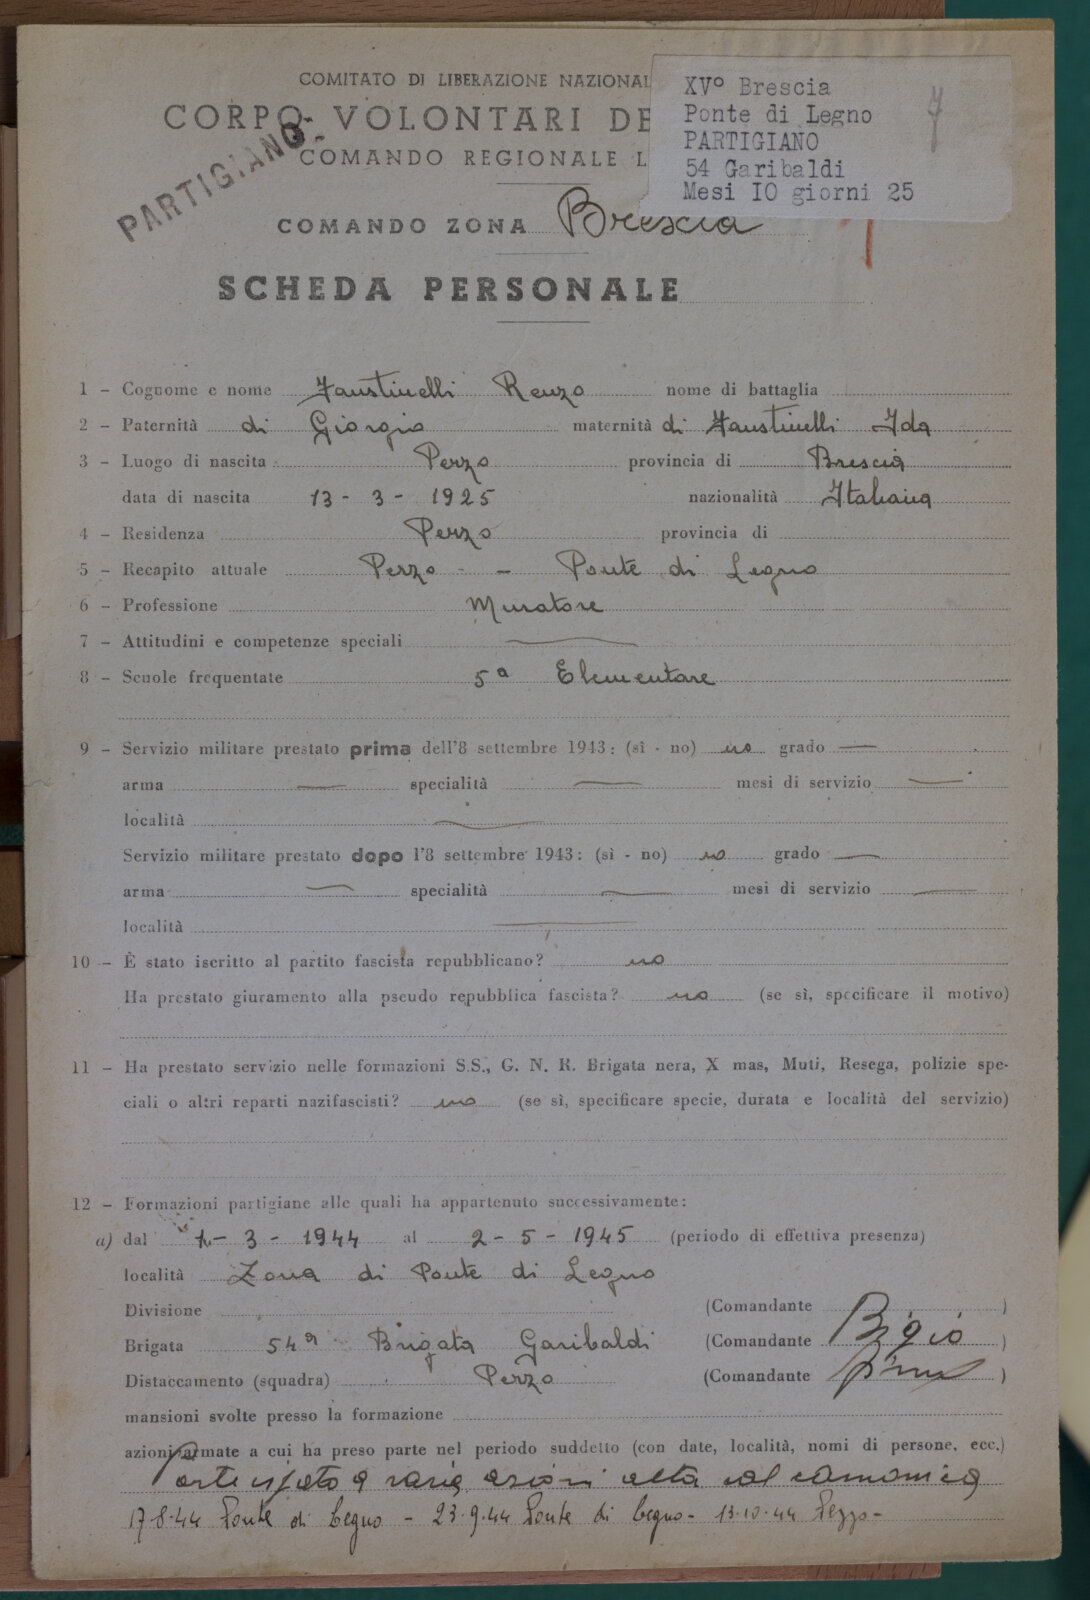 COMITATO DI LIBERAZIONE NAZIONAL
CORPO VOLONTARI DE
COMANDO REGIONALE L
XV° Brescia
Ponte di Legno
PARTIGIANO
54 Garibaldi
Mesi IO giorni 25
7
PARTIGIANO
COMANDO ZONA Brescia
SCHEDA PERSONALE
1 - Cognome e nome Faustinelli Renzo nome di battaglia
2 - Paternità di Giorgio maternità di Faustinelli Ida
3 - Luogo di nascita Pezzo provincia di Brescia
data di nascita 13 - 3 - 1925 nazionalità Italiana
4 - Residenza Pezzo provincia di
5 - Recapito attuale Pezzo - Ponte di Legno
6 - Professione Muratore
7 - Attitudini e competenze speciali
8 - Scuole frequentate 5a Elementare
9 - Servizio militare prestato prima dell'8 settembre 1943: (sì - no) no grado —
arma — specialità — mesi di servizio —
località —
Servizio militare prestato dopo l'8 settembre 1943: (sì - no) no grado —
arma — specialità — mesi di servizio —
località —
10 - È stato iscritto al partito fascista repubblicano? no
Ha prestato giuramento alla pseudo repubblica fascista? no (se sì, specificare il motivo)
11 - Ha prestato servizio nelle formazioni S.S., G. N. R. Brigata nera, X mas, Muti, Resega, polizie spe-
ciali o altri reparti nazifascisti? no (se sì, specificare specie, durata e località del servizio)
12 - Formazioni partigiane alle quali ha appartenuto successivamente:
a) dal 1 - 3 - 1944 al 2 - 5 - 1945 (periodo di effettiva presenza)
località Zona di Ponte di Legno
Divisione (Comandante )
Brigata 54a Brigata Garibaldi (Comandante Bigio )
Distaccamento (squadra) Pezzo (Comandante )
mansioni svolte presso la formazione
azioni armate a cui ha preso parte nel periodo suddetto (con date, località, nomi di persone, ecc.)
Partecipato a varie azioni alta val camonica
17-8-44 Ponte di Legno - 23-9-44 Ponte di Legno - 13-10-44 Pezzo -